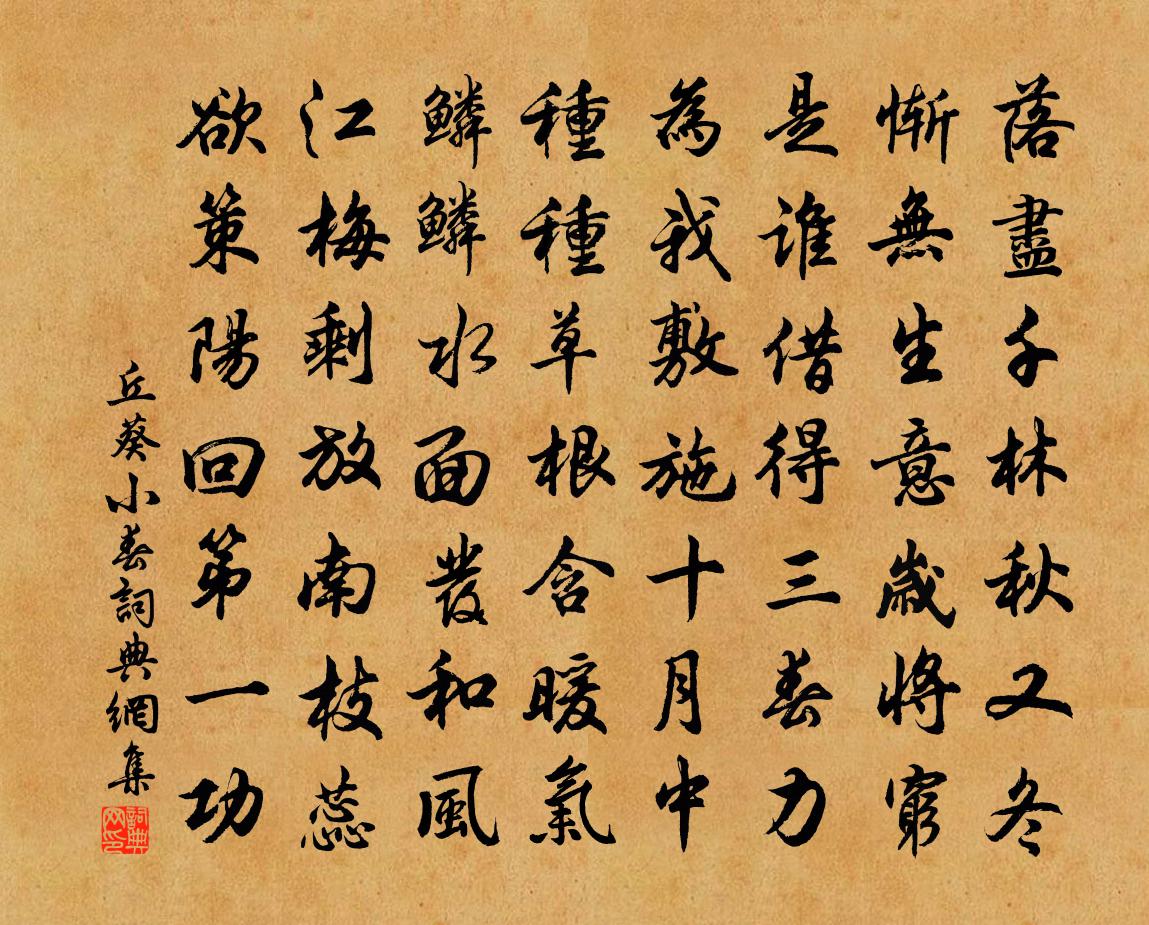 落盡千林秋又冬
慚無生意歲將窮
是誰借得三春力
為我敷施十月中
種種草根含暖氣
鱗鱗水面發和風
江梅剩放南枝蕊
欲策陽回第一功
丘葵小春詞典網集
詞典网印